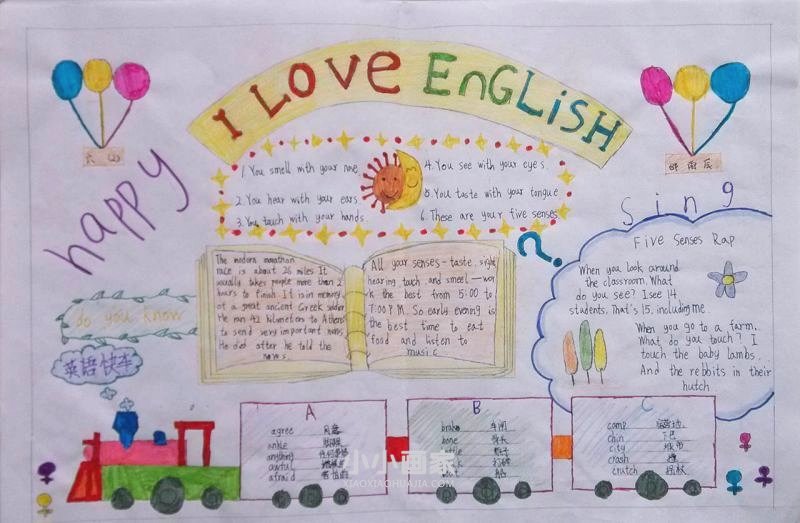 I LOVE EnGLiSH
六 (2)
happy
1. You smell with your nose
2. You hear with your ears.
3. You touch with your hands.
4. You see with your eyes.
5. You taste with your tongue
6. These are your five senses
?
sing
Five Senses Rap
When you look around
the classroom. What
do you see? I see 14
students. That's 15, including me.
When you go to a farm.
What do you touch? I
touch the baby lambs.
And the rebbits in their
hutch
The modern marathon
race is about 26 miles It
usually takes people more than 2
hours to finish. It is in memory
of a great ancient Greek soider
He ran 42 kilometers to Athens
to send very important news.
He died after he told the
news.
All your senses - taste, sight
hearing touch, and smeel - wor
k the best from 5:00 to
7:00 P.M. So early evening is
the best time to eat
food and listen to
music
do you know
英语快车
A
agree 同意
ankle 脚踝
anything 任何事物
awful
afraid 害怕的
B
brake 车闸
bone 骨头
bottle 瓶子
打碎
船
C
camp 宿营地
chin 下巴
city 城市
crash 撞
crutch 拐杖
小小画家
XIAOXIAOHUAJIA.COM